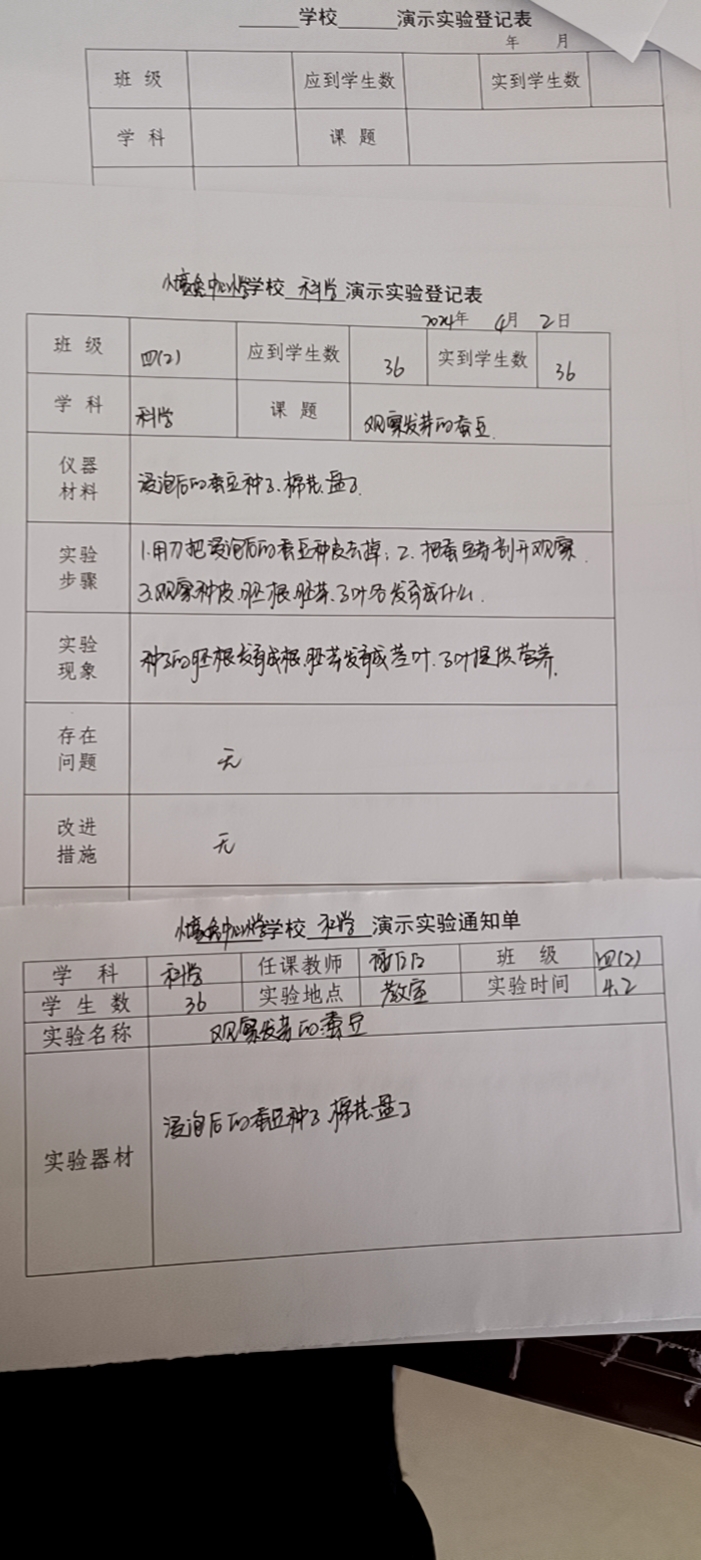 学校 演示实验登记表
年 月
班 级 应到学生数 实到学生数
学 科 课 题
学校 科学 演示实验登记表
2024年 4月 2日
班 级 四(2) 应到学生数 36 实到学生数 36
学 科 科学 课 题 观察发芽的蚕豆
仪器
材料
浸泡后的蚕豆种子、棉花、盘子.
实验
步骤
1.用刀把浸泡后的蚕豆种皮去掉; 2. 把蚕豆剖开观察.
3.观察种皮.胚根.胚芽.子叶各发育成什么.
实验
现象
种子的胚根发育成根.胚芽发育成茎叶.子叶提供营养.
存在
问题
无
改进
措施
无
学校 科学 演示实验通知单
学 科 科学 任课教师 班 级 四(2)
学 生 数 36 实验地点 教室 实验时间 4.2
实验名称 观察发芽的蚕豆
实验器材
浸泡后的蚕豆种子.棉花.盘子